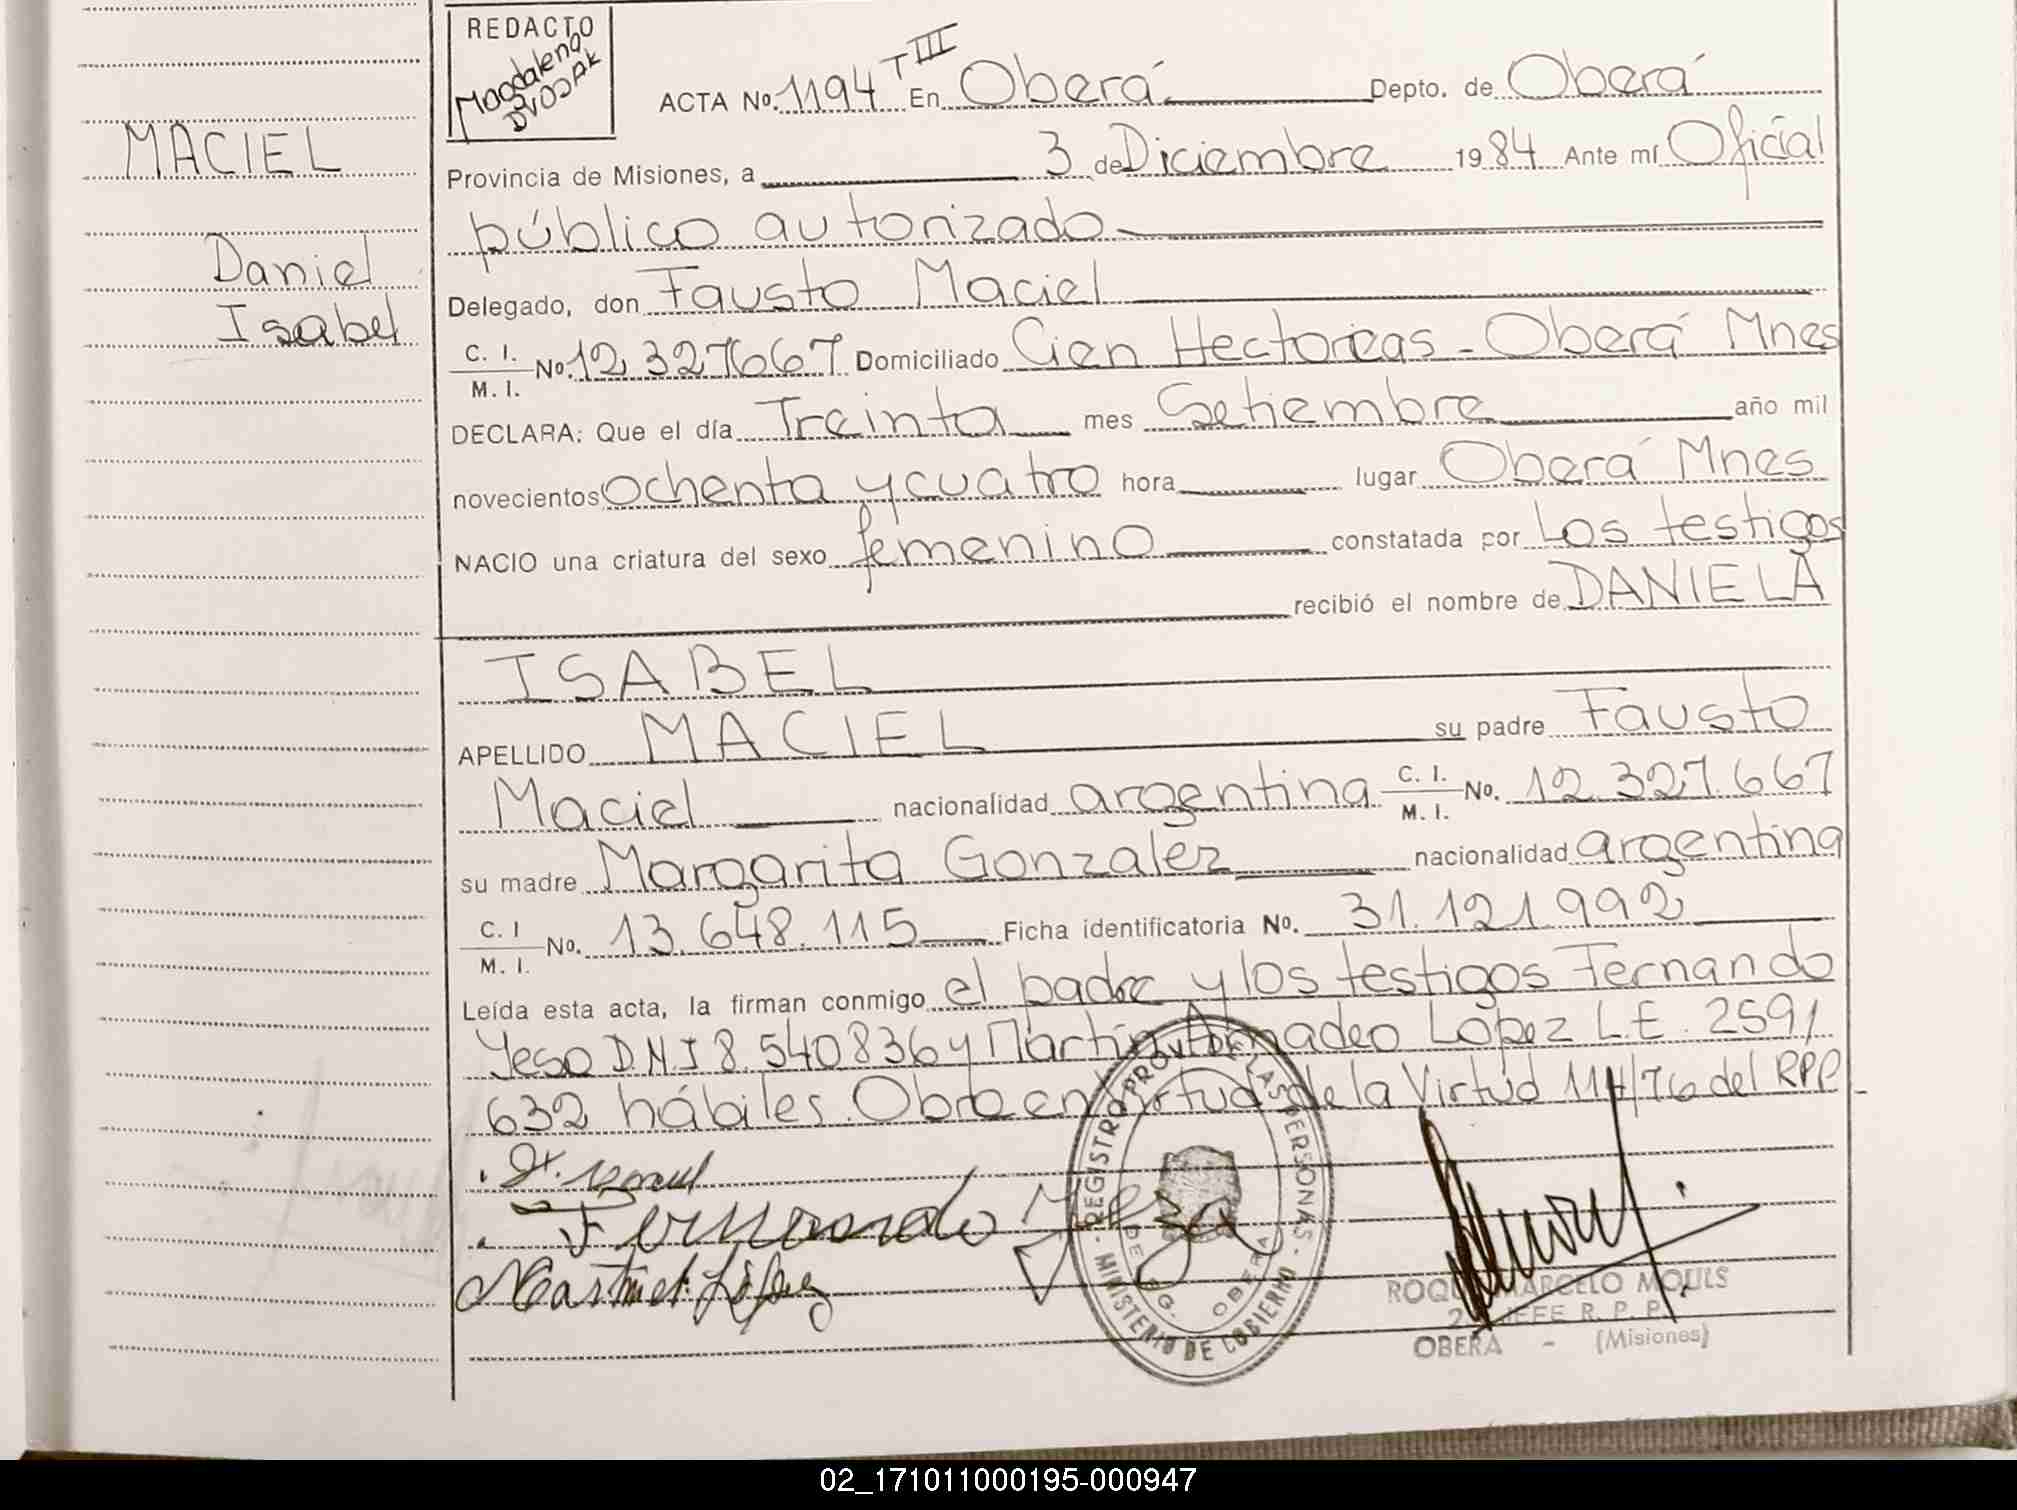 REDACTO
Magdalena
DVOJAK
ACTA No. 1194 T III En Oberá Depto. de Oberá
MACIEL
Provincia de Misiones, a 3 de Diciembre 1984 Ante mí Oficial
público autorizado
Daniel
Delegado, don Fausto Maciel
Isabel
C. I. / M. I. No. 12.327667 Domiciliado Cien Hectoreas - Oberá Mnes
DECLARA: Que el día Treinta mes Setiembre año mil
novecientos ochenta y cuatro hora lugar Oberá Mnes
NACIO una criatura del sexo femenino constatada por Los testigos
recibió el nombre de DANIELA
ISABEL
APELLIDO MACIEL su padre Fausto
Maciel nacionalidad argentina C. I. / M. I. No. 12.327.667
su madre Margarita Gonzalez nacionalidad argentina
C. I / M. I. No. 13.648.115 Ficha identificatoria No. 31.121.992
Leída esta acta, la firman conmigo el padre y los testigos Fernando
Yeso D.N.I 8.540836 y Martín Amadeo López L.E. 2591
632 hábiles. Obro en virtud de la Virtúd 114/76 del RPP
Fernando Yeso
López
REGISTRO PROV. DE LAS PERSONAS
DELEG. OBERA
MINISTERIO DE GOBIERNO
ROQUE MARCELO MOULS
2º JEFE R. P. P.
OBERA - (Misiones)
02_171011000195-000947